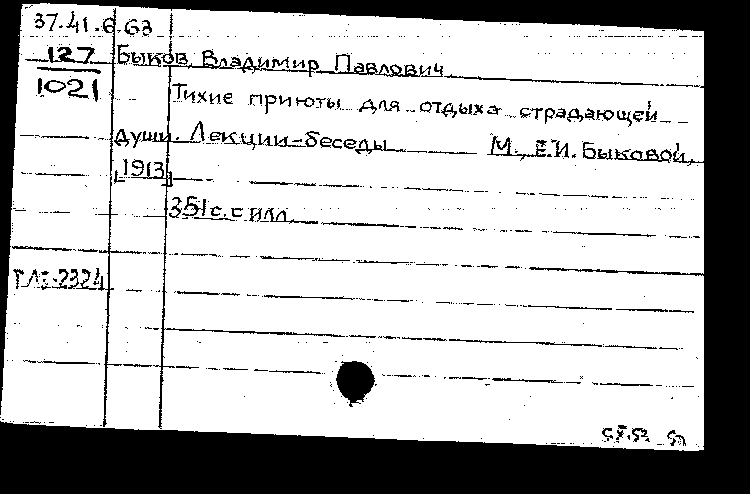 37.41.6.63
127 Быков, Владимир Павлович
1021 Тихие приюты для отдыха страдающей
души. Лекции-беседы М., Е.И. Быковой,
[1913]
351 с. с илл.